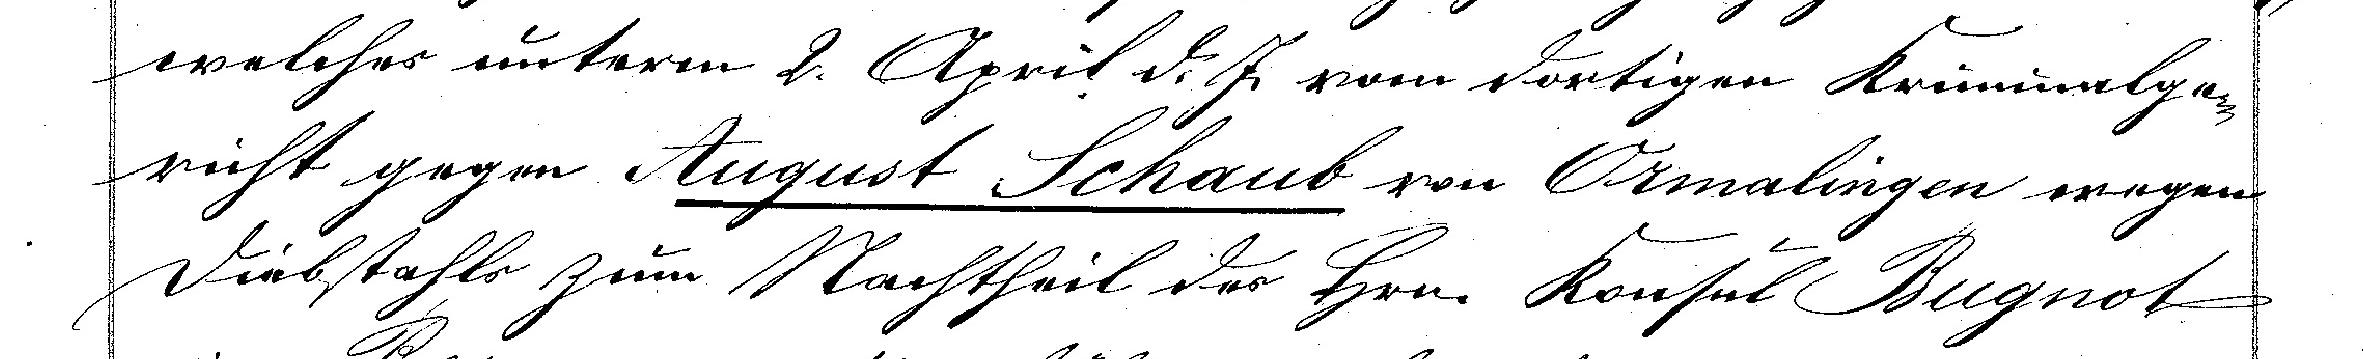 welches unterm 2. April d. J. vom dortigen Kriminalge-
richt gegen August Schaub von Ormalingen wegen
Diebstahls zum Nachtheil des Hrn. Konsul Bugnot